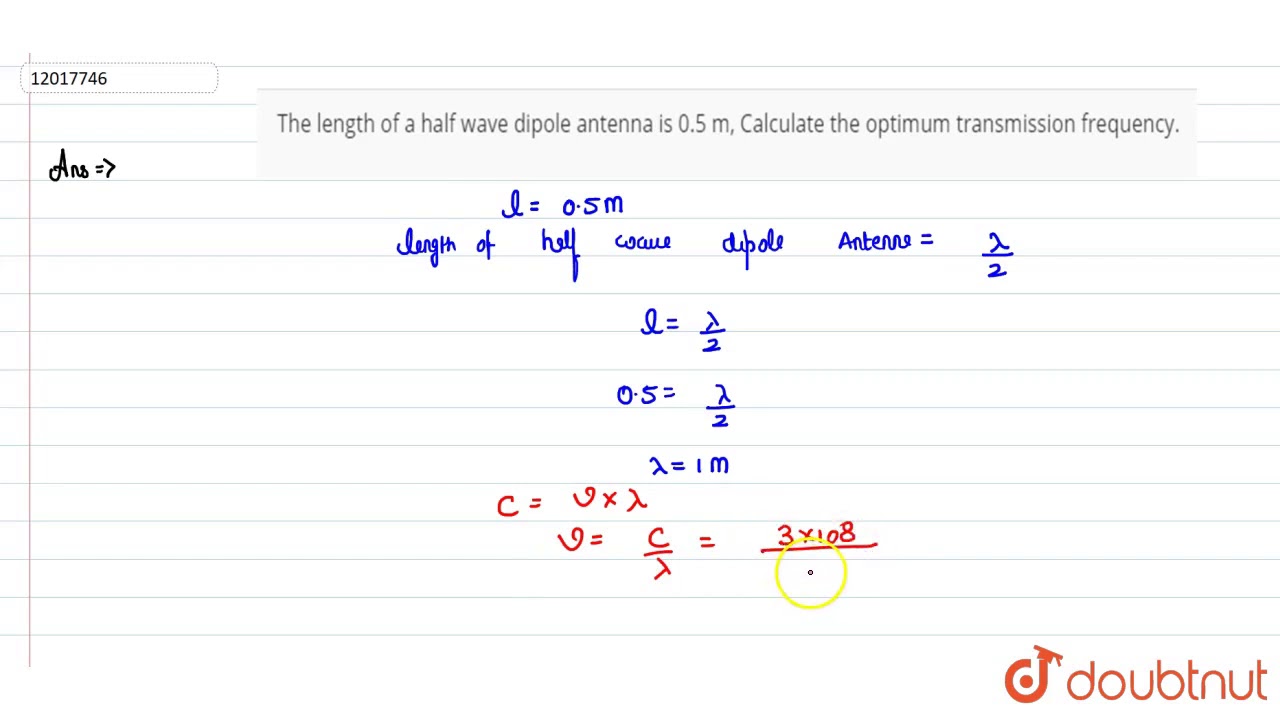 12017746
The length of a half wave dipole antenna is 0.5 m, Calculate the optimum transmission frequency.
Ans =>
l = 0.5m
length of half wave dipole Antenne = λ/2
l = λ/2
0.5 = λ/2
λ = 1 m
C = ν × λ
ν = C/λ = 3×108
doubtnut